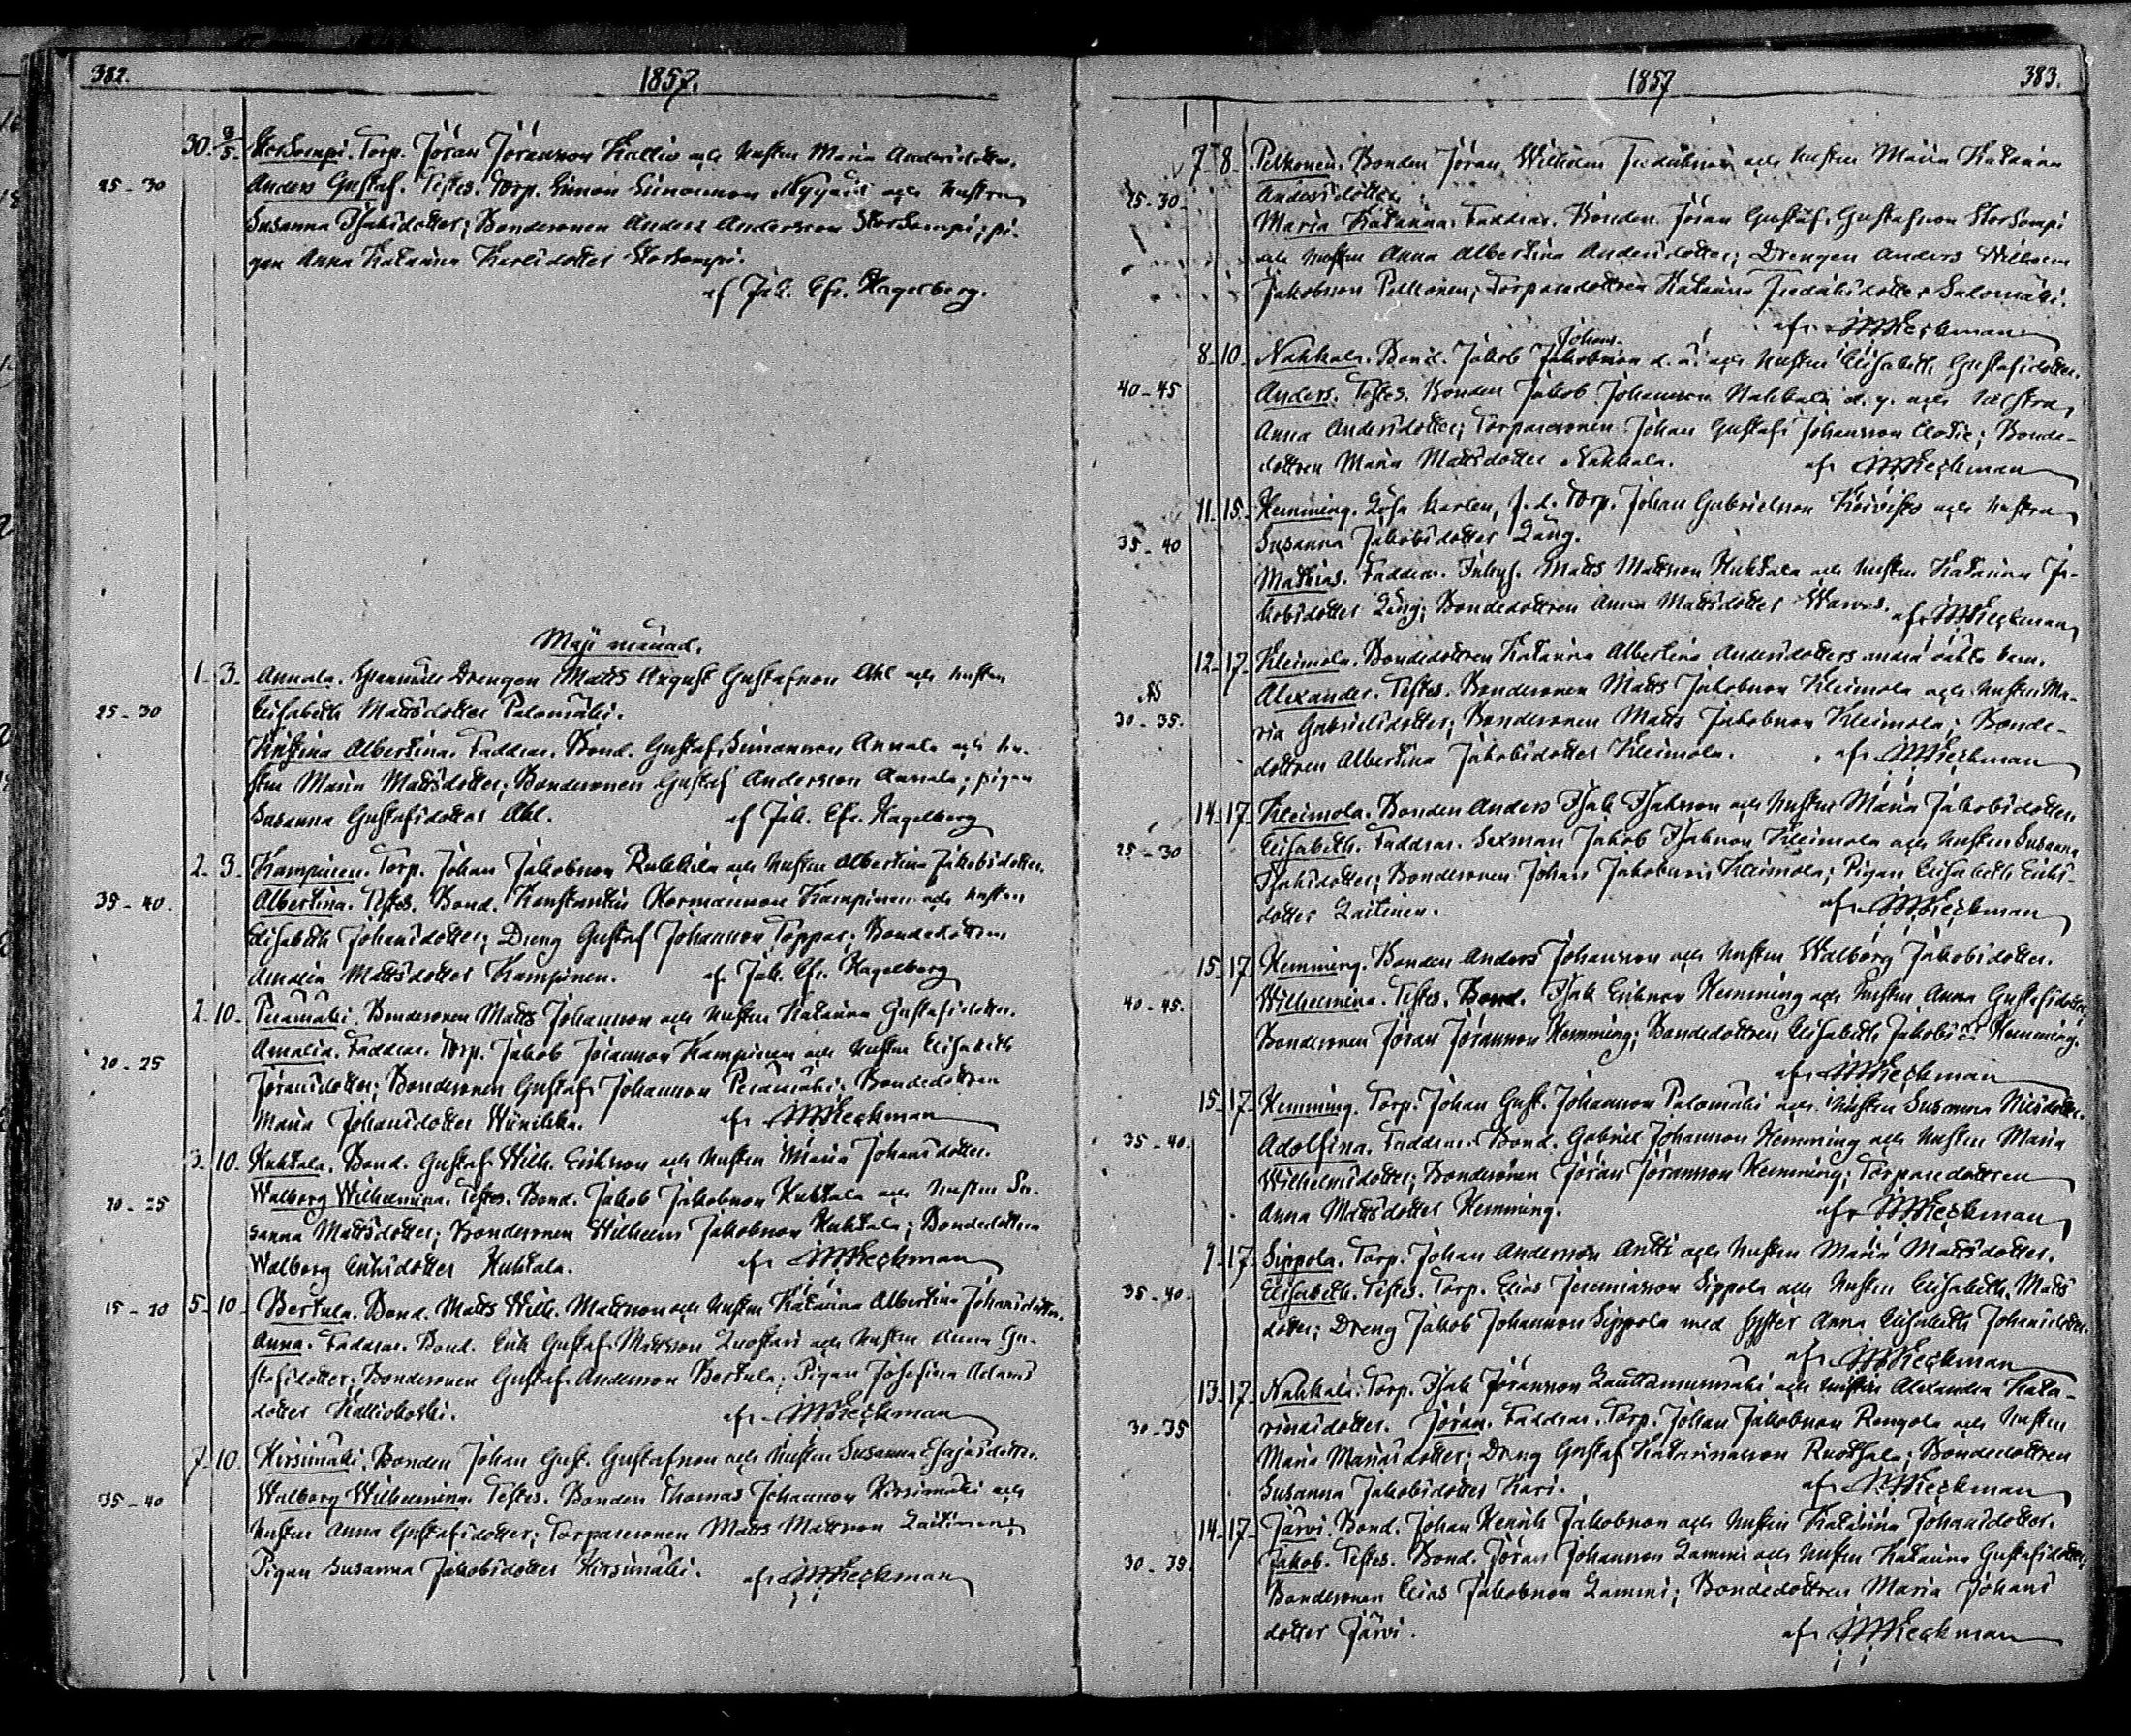 382.
1857.
30. 3/5. Storkempi. Torp. Jöran Jöransson Kallio och hustru Maria Andersdotter.
25-30 Anders Gustaf. Testes. Torp. Simon Simonsson Nygård och hustru
Susanna Isaksdotter; Bondesonen Anders Andersson Storkempi; pi-
gan Anna Katarina Karlsdotter Storkempi.
af Jak. Efr. Hagelberg.
Maji månad.
1. 3. Annala. Drengen Matts August Gustafsson Ahl och hustru
25-30 Elisabeth Mattsdotter Palomäki.
Kristina Albertina. Faddrar. Bond. Gustaf Simonsson Annala och hu-
stru Maria Mattsdotter; Bondesonen Gustaf Andersson Annala; pigan
Susanna Gustafsdotter Ahl. af Jak. Efr. Hagelberg
2. 3. Kampinen. Torp. Johan Jakobsson Rukkila och hustru Albertina Jakobsdotter.
35-40. Albertina. Testes. Bond. Konstantin Hermansson Kampinen och hustru
Elisabeth Johansdotter; Dreng Gustaf Johansson Toppar; Bondedottren
Amalia Mattsdotter Kampinen. af Jak. Efr. Hagelberg
2. 10. Perämäki. Bondesonen Matts Johansson och hustru Katarina Gustafsdotter.
20-25 Amalia. Faddrar. Torp. Jakob Jöransson Kampinen och hustru Elisabeth
Jöransdotter; Bondesonen Gustaf Johansson Perämäki; Bondedottren
Maria Johansdotter Wiinikka. af Heikman
3. 10. Huhtala. Bond. Gustaf Wilh. Eriksson och hustru Maria Johansdotter.
20-25 Walborg Wilhelmina. Testes. Bond. Jakob Jakobsson Huhtala och hustru Su-
sanna Mattsdotter; Bondesonen Wilhelm Jakobsson Huhtala; Bondedottren
Walborg Eriksdotter Huhtala. af Heikman
15-20 5. 10. Bertula. Bond. Matts Wilh. Mattsson och hustru Katarina Albertina Johansdotter.
Anna. Faddrar. Bond. Erik Gustaf Mattsson Luostari och hustru Anna Gu-
stafsdotter; Bondesonen Gustaf Andersson Bertula; Pigan Josefina Adams
dotter Kalliokoski. af Heikman
7. 10. Hirsimäki. Bonden Johan Gust. Gustafsson och hustru Susanna Esajasdotter.
35-40 Walborg Wilhelmina. Testes. Bonden Thomas Johansson Hirsimäki och
hustru Anna Gustafsdotter; Torparesonen Matts Mattsson Laitinen;
Pigan Susanna Jakobsdotter Hirsimäki. af Heikman
1857
383.
7. 8. Pelkonen. Bonden Jöran Wilhelm Fredriksson och hustru Maria Katarina
25-30. Andersdotter.
Maria Katarina. Faddrar. Bonden Jöran Gustaf Gustafsson Storkempi
och hustru Anna Albertina Andersdotter; Drengen Anders Wilhelm
Jakobsson Pelkonen; Torparedottren Katarina Fredriksdotter Salomäki.
af Heikman
Johans-
8. 10. Nahkala. Bond. Jakob Jakobsson d. ä. och hustru Elisabeth Gustafsdotter.
40-45 Anders. Testes. Bonden Jakob Johansson Nahkala d. y. och hustru
Anna Andersdotter; Torparesonen Johan Gustaf Johansson; Bonde-
dottren Maria Mattsdotter Nahkala. af Heikman
11. 15. Hemming. Lösa karlen, f. d. Torp. Johan Gabrielsson Koivisto och hustru
35-40 Susanna Jakobsdotter Lång.
Mathias. Faddrar. Inhys. Matts Mattsson Huhtala och hustru Katarina Ja-
kobsdotter Lång; Bondedottren Anna Mattsdotter Warvas. af Heikman
12. 17. Kleimola. Bondedottren Katarina Albertina Andersdotters andra oäkta barn.
Alexander. Testes. Bondesonen Matts Jakobsson Kleimola och hustru Ma-
30-35. ria Gabrielsdotter; Bondesonen Matts Jakobsson Kleimola; Bonde-
dottren Albertina Jakobsdotter Kleimola. af Heikman
14. 17. Kleimola. Bonden Anders Isak Isaksson och hustru Maria Jakobsdotter
25-30 Elisabeth. Faddrar. Sexman Jakob Isaksson Kleimola och hustru Susanna
Isaksdotter; Bondesonen Johan Jakobsson Kleimola; Pigan Elisabeth Eriks-
dotter Laitinen. af Heikman
15. 17. Hemming. Bonden Anders Johansson och hustru Walborg Jakobsdotter.
40-45. Wilhelmina. Testes. Bond. Isak Eriksson Hemming och hustru Anna Gustafsdotter;
Bondesonen Jöran Jöransson Hemming; Bondedottren Elisabeth Jakobsd. Hemming.
af Heikman
15. 17. Hemming. Torp. Johan Gust. Johansson Palomäki och hustru Susanna Nilsdotter.
35-40. Adolfina. Faddrar. Bond. Gabriel Johansson Hemming och hustru Maria
Wilhelmsdotter; Bondesonen Jöran Jöransson Hemming; Torparedottren
Anna Mattsdotter Hemming. af Heikman
9. 17. Sippola. Torp. Johan Andersson Antti och hustru Maria Mattsdotter.
35-40. Elisabeth. Testes. Torp. Elias Jeremiasson Sippola och hustru Elisabeth Matts
dotter; Dreng Jakob Johansson Sippola med syster Anna Elisabeth Johansdotter.
af Heikman
13. 17. Nahkala. Torp. Isak Jöransson Lauttamusmäki och hustru Alexandra Kata-
30-35 rinasdotter. Jöran. Faddrar. Torp. Johan Jakobsson Rengola och hustru
Maria Mariasdotter; Dreng Gustaf Katarinasson Ruotsala; Bondedottren
Susanna Jakobsdotter Kari. af Heikman
14. 17. Järvi. Bond. Johan Henrik Jakobsson och hustru Katarina Johansdotter.
30-35. Jakob. Testes. Bond. Jöran Johansson Lammi och hustru Katarina Gustafsdotter;
Bondesonen Elias Jakobsson Lammi; Bondedottren Maria Johans
dotter Järvi. af Heikman